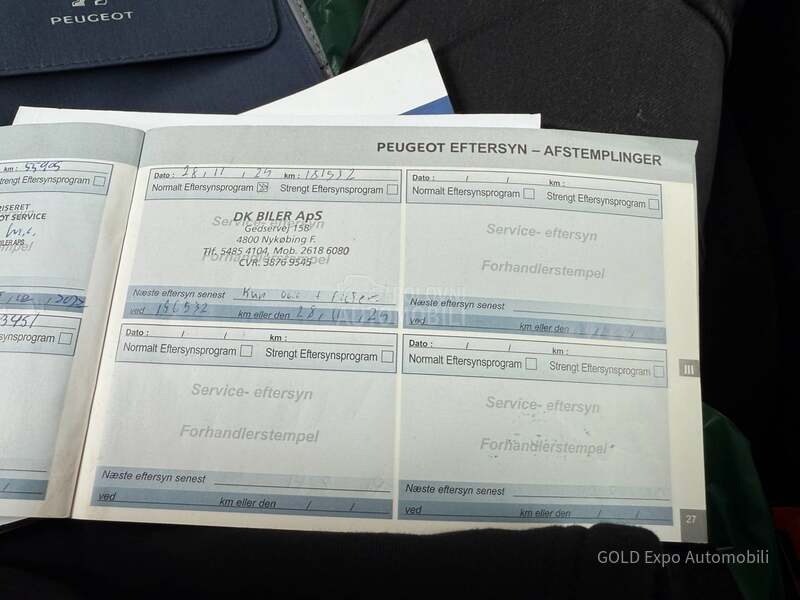 PEUGEOT
PEUGEOT EFTERSYN – AFSTEMPLINGER
km : 55905
Strengt Eftersynsprogram
RISERET
OT SERVICE
Dato : 28 / 11 / 25 km : 181532
Normalt Eftersynsprogram ☒ Strengt Eftersynsprogram
Service- eftersyn
Forhandlerstempel
DK BILER ApS
Gedservej 15B
4800 Nykøbing F.
Tlf. 5485 4104, Mob. 2618 6080
CVR. 3876 9545
Næste eftersyn senest Kun
ved 196532 km eller den 28
Dato : / / km :
Normalt Eftersynsprogram Strengt Eftersynsprogram
Service- eftersyn
Forhandlerstempel
Næste eftersyn senest
ved km eller den / /
Dato : / / km :
Normalt Eftersynsprogram Strengt Eftersynsprogram
Service- eftersyn
Forhandlerstempel
Næste eftersyn senest
ved km eller den / /
Dato : / / km :
Normalt Eftersynsprogram Strengt Eftersynsprogram
Service- eftersyn
Forhandlerstempel
Næste eftersyn senest
ved km eller den / /
III
27
POLOVNI
AUTOMOBILI
GOLD Expo Automobili